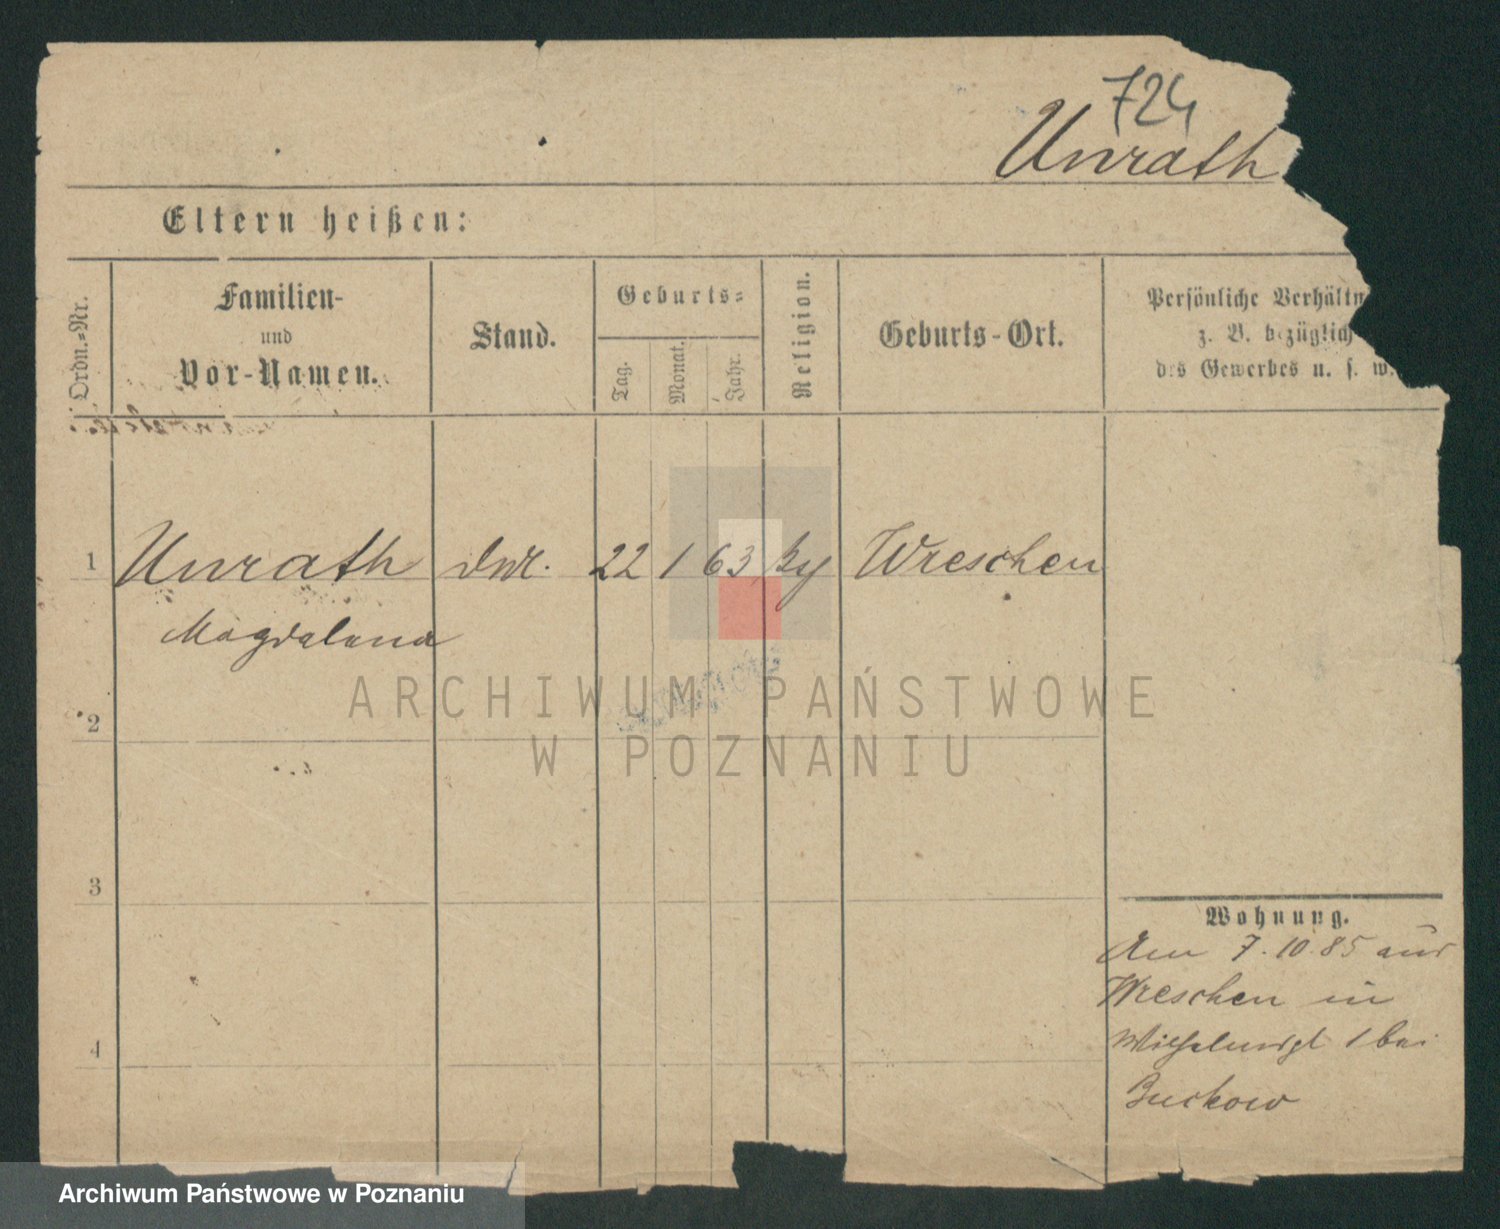 724
Unrath
Eltern heißen:
Ordn.-Nr.
Familien-
und
Vor-Namen.
Stand.
Geburts-
Tag.
Monat.
Jahr.
Religion.
Geburts-Ort.
Persönliche Verhältn
z. B. bezüglich
des Gewerbes u. s. w.
1 Unrath 22 1 63 Wreschen
Magdalena
2
3
4
Wohnung.
Am 7.10.85 aus
Wreschen in
1 bei
Buckow
ARCHIWUM PAŃSTWOWE
W POZNANIU
Archiwum Państwowe w Poznaniu